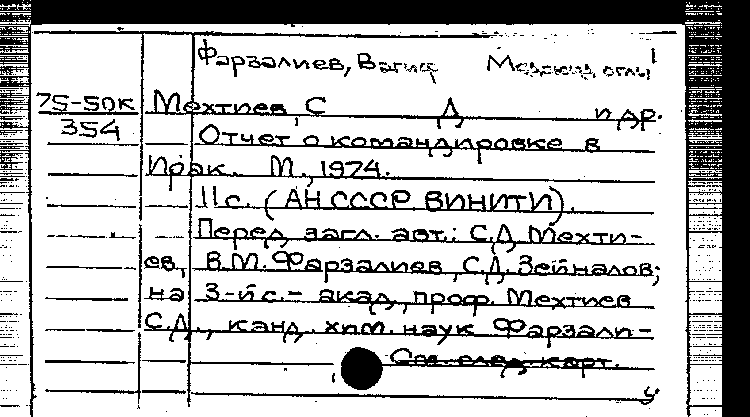 Фарзалиев, Вагиф М оглы
75-50к Мехтиев, С Д и др.
354 Отчет о командировке в
Ирак. М., 1974.
11 с. (АН СССР ВИНИТИ).
Перед загл. авт.: С.Д. Мехти-
ев, В.М. Фарзалиев, С.Д. Зейналов;
на 3-й с. - акад., проф. Мехтиев
С.Д., канд. хим. наук Фарзали-
См. след. карт.
у